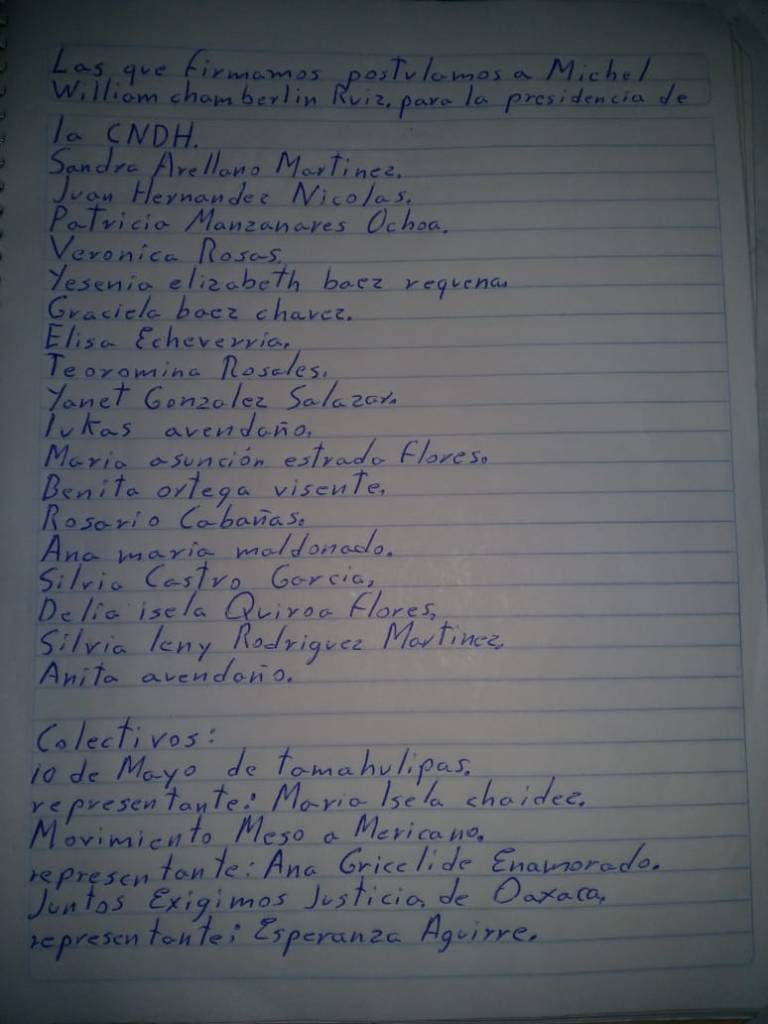 Las que firmamos postulamos a Michel
William chamberlin Ruiz. para la presidencia de
la CNDH.
Sandra Arellano Martinez.
Juan Hernandez Nicolas.
Patricia Manzanares Ochoa.
Veronica Rosas.
Yesenia elizabeth baez requena.
Graciela baez chavez.
Elisa Echeverria.
Teoromina Rosales.
Yanet Gonzalez Salazar.
lukas avendaño.
Maria asunción estrada flores.
Benita ortega visente.
Rosario Cabañas.
Ana maria maldonado.
Silvia Castro Garcia.
Delia isela Quiroa flores.
Silvia leny Rodriguez Martinez.
Anita avendaño.
Colectivos:
10 de Mayo de tamahulipas.
representante: Maria Isela chaidez.
Movimiento Meso a Mericano.
representante: Ana Gricelide Enamorado.
Juntos Exigimos Justicia de Oaxaca.
representante: Esperanza Aguirre.